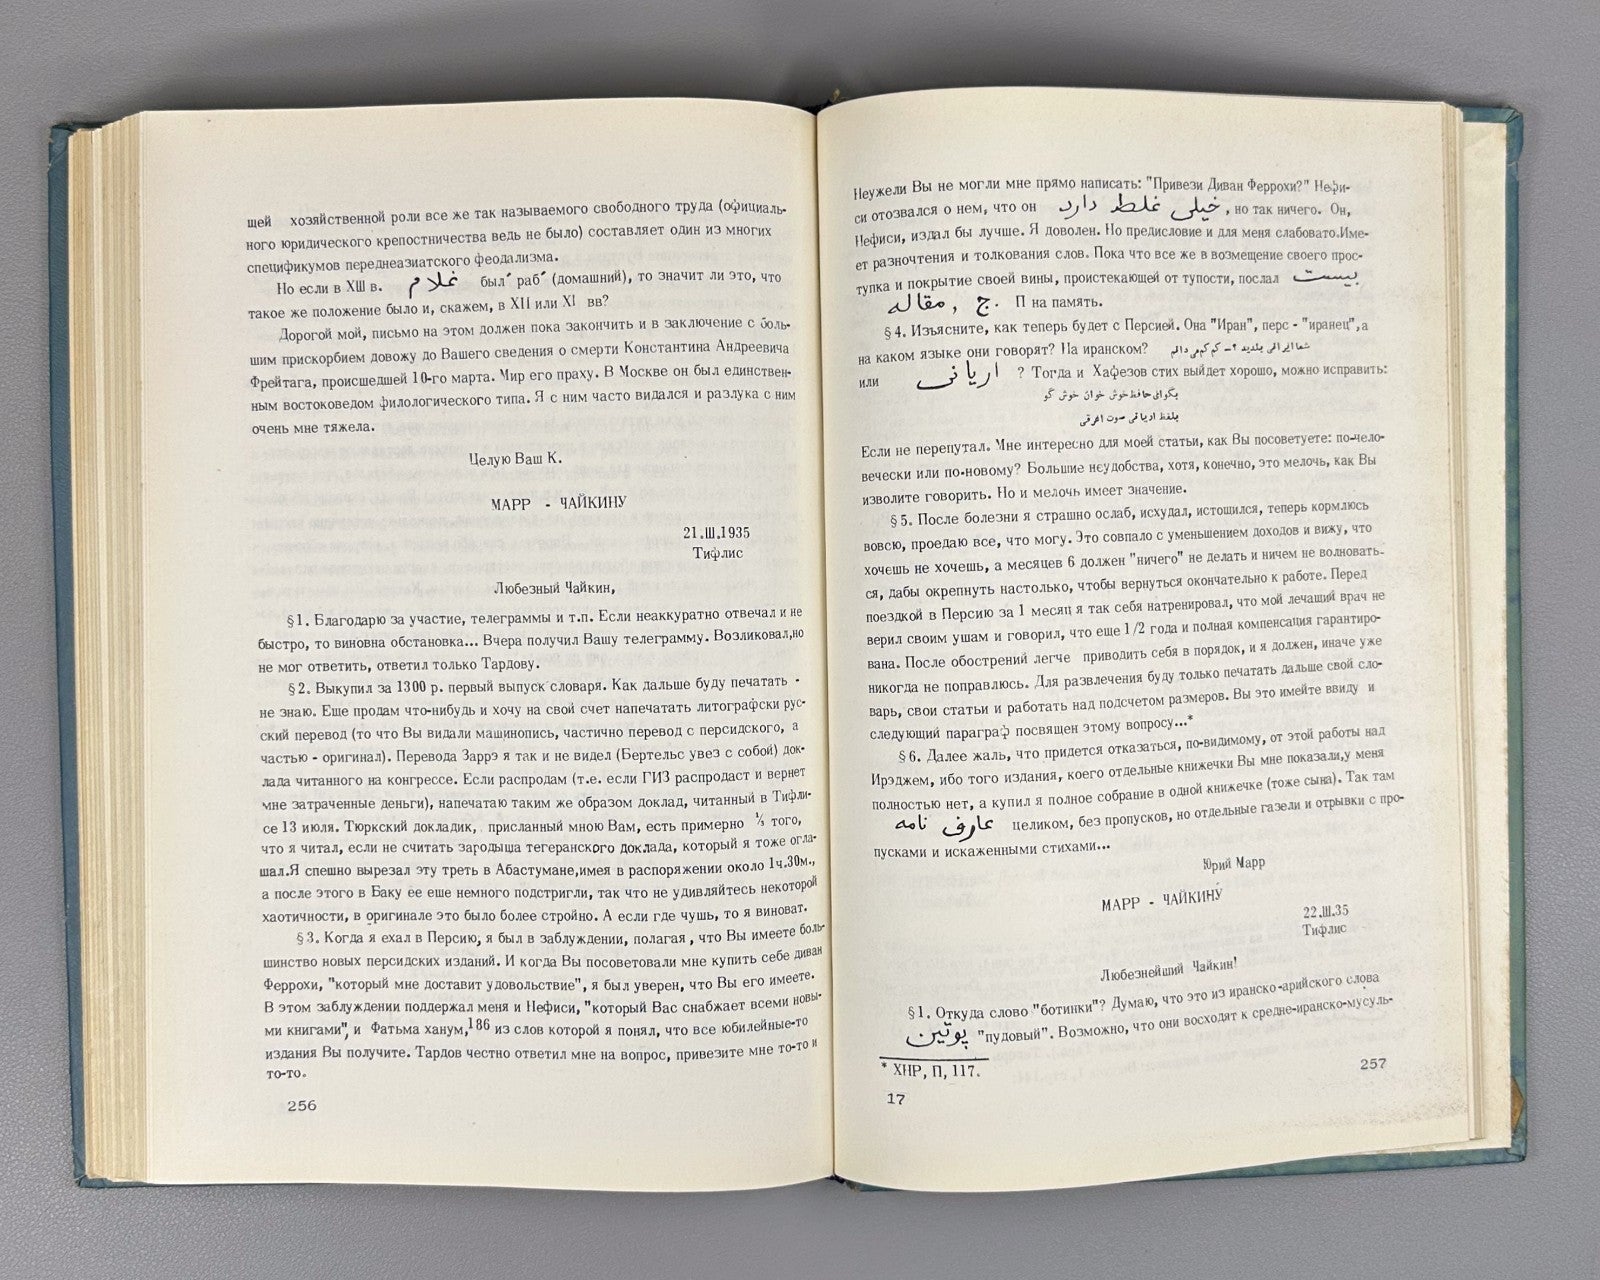 щей хозяйственной роли все же так называемого свободного труда (официаль-
ного юридического крепостничества ведь не было) составляет один из многих
спецификумов переднеазиатского феодализма.
Но если в XШ в. غلام был раб (домашний), то значит ли это, что
такое же положение было и, скажем, в XII или XI вв?
Дорогой мой, письмо на этом должен пока закончить и в заключение с боль-
шим прискорбием довожу до Вашего сведения о смерти Константина Андреевича
Фрейтага, происшедшей 10-го марта. Мир его праху. В Москве он был единствен-
ным востоковедом филологического типа. Я с ним часто видался и разлука с ним
очень мне тяжела.
Целую Ваш К.
МАРР - ЧАЙКИНУ
21.Ш.1935
Тифлис
Любезный Чайкин,
§1. Благодарю за участие, телеграммы и т.п. Если неаккуратно отвечал и не
быстро, то виновна обстановка... Вчера получил Вашу телеграмму. Возликовал,но
не мог ответить, ответил только Тардову.
§2. Выкупил за 1300 р. первый выпуск словаря. Как дальше буду печатать -
не знаю. Еще продам что-нибудь и хочу на свой счет напечатать литографски рус-
ский перевод (то что Вы видали машинопись, частично перевод с персидского, а
частью - оригинал). Перевода Заррэ я так и не видел (Бертельс увез с собой) док-
лада читанного на конгрессе. Если распродам (т.е. если ГИЗ распродаст и вернет
мне затраченные деньги), напечатаю таким же образом доклад, читанный в Тифли-
се 13 июля. Тюркский докладик, присланный мною Вам, есть примерно ⅓ того,
что я читал, если не считать зародыша тегеранского доклада, который я тоже огла-
шал.Я спешно вырезал эту треть в Абастумане,имея в распоряжении около 1ч.30м.,
а после этого в Баку ее еще немного подстригли, так что не удивляйтесь некоторой
хаотичности, в оригинале это было более стройно. А если где чушь, то я виноват.
§3. Когда я ехал в Персию, я был в заблуждении, полагая, что Вы имеете боль-
шинство новых персидских изданий. И когда Вы посоветовали мне купить себе диван
Феррохи, "который мне доставит удовольствие", я был уверен, что Вы его имеете.
В этом заблуждении поддержал меня и Нефиси, "который Вас снабжает всеми новы-
ми книгами", и Фатьма ханум,186 из слов которой я понял, что все юбилейные-то
издания Вы получите. Тардов честно ответил мне на вопрос, привезите мне то-то и
то-то.
256
Неужели Вы не могли мне прямо написать: "Привези Диван Феррохи?" Нефи-
си отозвался о нем, что он خیلی غلط دارد, но так ничего. Он,
Нефиси, издал бы лучше. Я доволен. Но предисловие и для меня слабовато.Име-
ет разночтения и толкования слов. Пока что все же в возмещение своего прос-
тупка и покрытие своей вины, проистекающей от тупости, послал بیست
مقاله , ج. П на память.
§4. Изъясните, как теперь будет с Персией. Она "Иран", перс - "иранец",а
на каком языке они говорят? На иранском? شما ایرانی بلدید ؟ - کم کم می دانم
или اریانی ? Тогда и Хафезов стих выйдет хорошо, можно исправить:
بگوای حافظ خوش خوان خوش گو
بلفظ اریاقی صوت اعرقی
Если не перепутал. Мне интересно для моей статьи, как Вы посоветуете: по-чело-
вечески или по-новому? Большие неудобства, хотя, конечно, это мелочь, как Вы
изволите говорить. Но и мелочь имеет значение.
§5. После болезни я страшно ослаб, исхудал, истощился, теперь кормлюсь
вовсю, проедаю все, что могу. Это совпало с уменьшением доходов и вижу, что
хочешь не хочешь, а месяцев 6 должен "ничего" не делать и ничем не волновать-
ся, дабы окрепнуть настолько, чтобы вернуться окончательно к работе. Перед
поездкой в Персию за 1 месяц я так себя натренировал, что мой лечащий врач не
верил своим ушам и говорил, что еще 1/2 года и полная компенсация гарантиро-
вана. После обострений легче приводить себя в порядок, и я должен, иначе уже
никогда не поправлюсь. Для развлечения буду только печатать дальше свой сло-
варь, свои статьи и работать над подсчетом размеров. Вы это имейте ввиду и
следующий параграф посвящен этому вопросу...*
§6. Далее жаль, что придется отказаться, по-видимому, от этой работы над
Ирэджем, ибо того издания, коего отдельные книжечки Вы мне показали,у меня
полностью нет, а купил я полное собрание в одной книжечке (тоже сына). Так там
عارف نامه целиком, без пропусков, но отдельные газели и отрывки с про-
пусками и искаженными стихами...
Юрий Марр
МАРР - ЧАЙКИНУ
22.Ш.35
Тифлис
Любезнейший Чайкин!
§1. Откуда слово "ботинки"? Думаю, что это из иранско-арийского слова
پوتین "пудовый". Возможно, что они восходят к средне-иранско-мусуль-
* ХНР, П, 117.
17
257